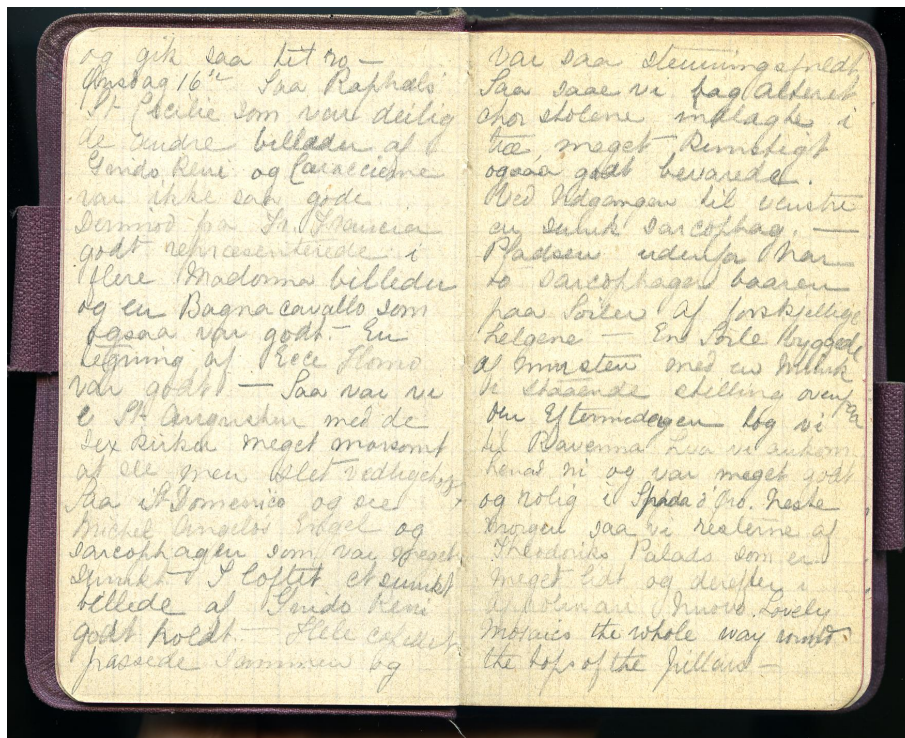 og gik saa til ro —
Onsdag 16de Saa Raphaels
St Cecilie som var deilig
de andre billeder af
Guido Reni og Caraccierne
var ikke saa gode.
Derimod fra Fr. Francia
godt representerede i
flere Madonna billeder
og en Bagnacavallo som
ogsaa var godt. — En
tegning af Ecce Homo
var godt — Saa var vi
i St. Augustin med de
sex kirker meget morsomt
at see men slet vedligeholdt
Saa i St Domenico og see
Michel Angelos Engel og
sarcophagen som var meget
smukt I loftet et smukt
billede af Guido Reni
godt holdt. — Hele
passede sammen og
var saa stemningsfuldt
Saa saae vi bag alteret
chor stolene indlagte i
træ meget kunstigt
ogsaa godt bevarede.
Ved Udgangen til venstre
en smuk sarcophag. —
Pladsen udenfor har
to sarcophager baaren
paa Söiler af forskjellige
helgene — En Söile bygged
af mursten med en Munk
i staaende stilling oven paa
Om Eftermidagen tog vi
til Ravenna hvor vi ankom
henad ni og var meget godt
og rolig i Spada d'Oro. Neste
morgen saa vi resterne af
Theodoriks Palads som er
meget lidt og derefter i
Apolinari Nuovo. Lovely
Mosaics the whole way round
the top of the Pillars —